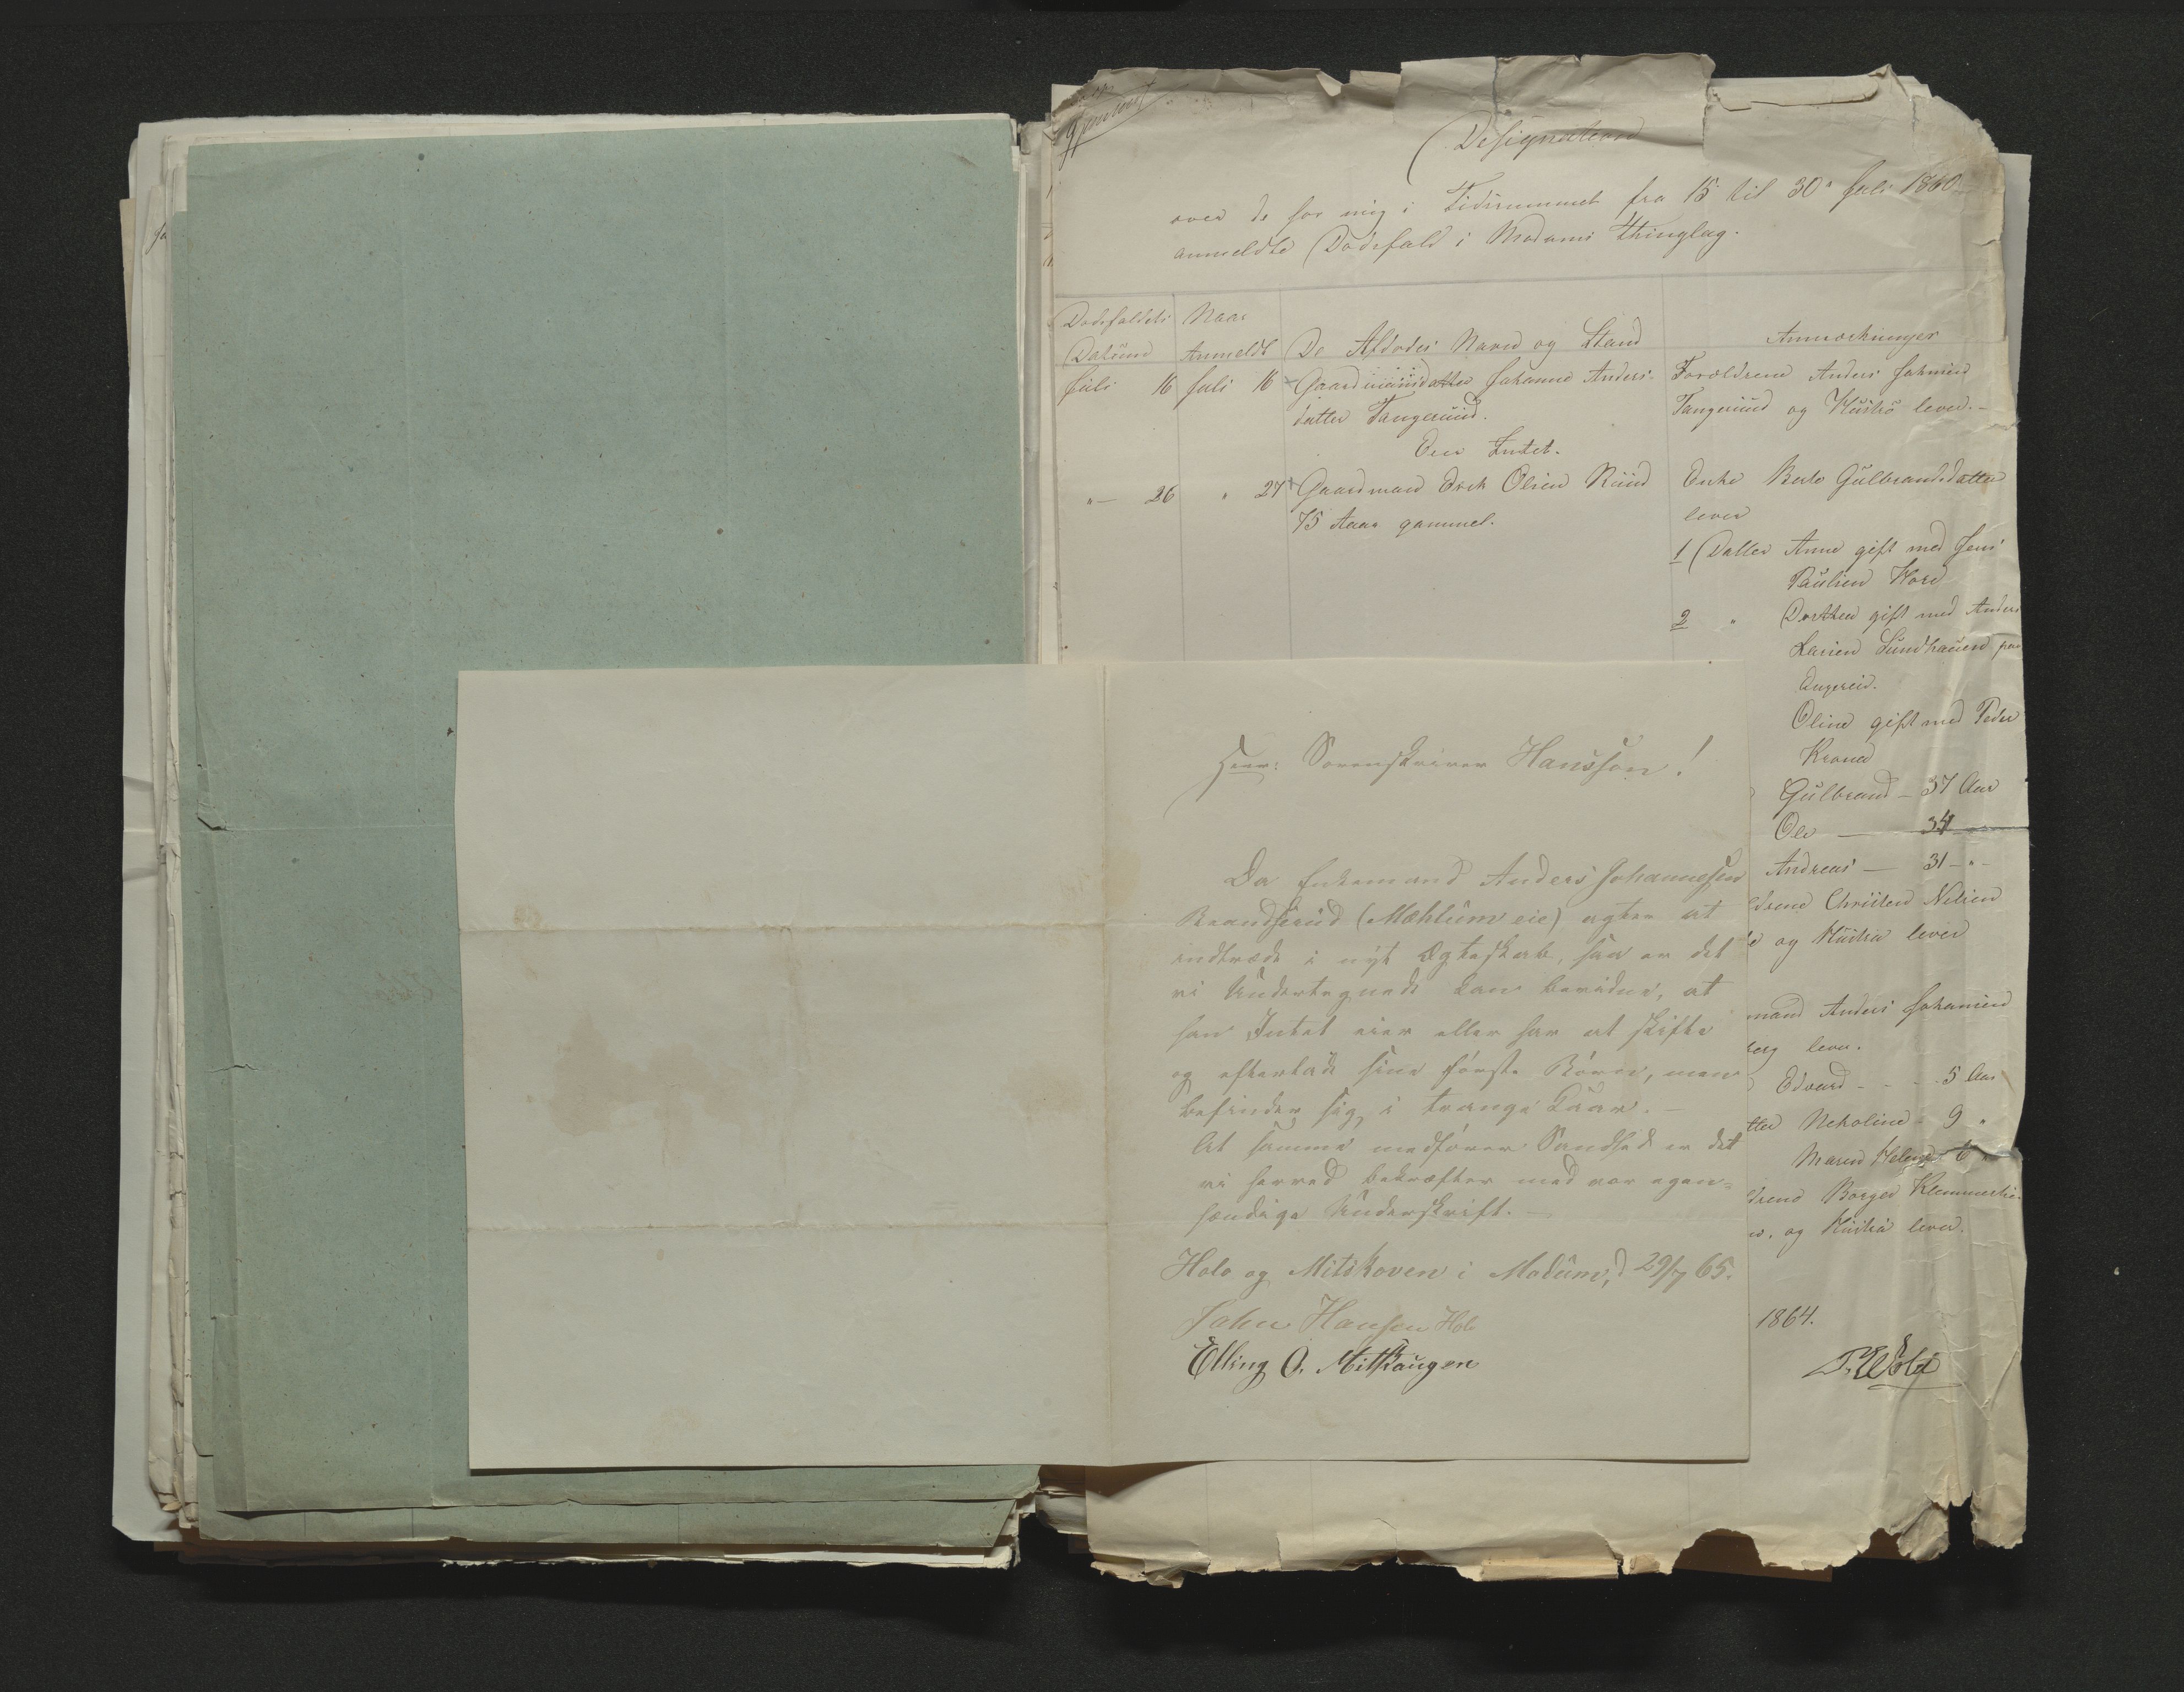 Designation
over de for mig i Tidsrummet fra 15 til 30 Juli 1860
anmeldte Dødsfald i Modums Thinglag.
Dødsfaldets Naar
Datum Anmeldt De Afdødes Navn og Stand Anmærkninger
Juli 16 Juli 16 Gaardmandsdatter Johanne Anders- Forældrene Anders Johnsen
datter Tangerud. Tangerud og Hustro lever.-
Eier Intet.
"- 26 " 27 Gaardmand Erik Olsen Ruud Enke Berte Gulbrandsdatter
75 Aar gammel. lever
1 Datter Anne gift med Jens
Paulsen Hore
2 " Dorthea gift med Anders
Larsen Sundhaugen paa
Oline gift med Peder
Krona
Gulbrand - 37 Aar
Ole - 34
Andreas - 31 - " -
ldrene Christen Nilsen
og Hustru lever
mand Anders Johansen
berg lever.
Edvard - - - 5 Aar
tter Nekoline - 9 "
Maren Helene 6
ldrene Borger Klemmetsen
og Hustru lever.
1864.
Herr: Sorenskriver Hansson!
Da Enkemand Anders Johannesen
Brandserud (Mæhlum eie) agter at
indtræde i nyt Ægteskab, saa er det
vi Undertegnede kan bevidne, at
han Intet eier eller har at skifte
og efterlade sine første Børn, men
befinder sig i trange Kaar. -
At samme medfører Sandhed er det
vi herved bekræfter med vor egen-
hændige Underskrift. -
Holo og Mitskoven i Modum, d 29/7 65.
John Hansen Hole
Elling O. Mitskaugen